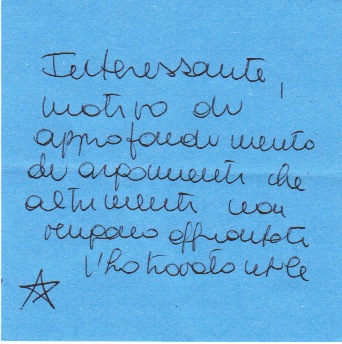 Interessante,
motivo di
approfondimento
di argomenti che
altrimenti non
vengono affrontati
l'ho trovato utile